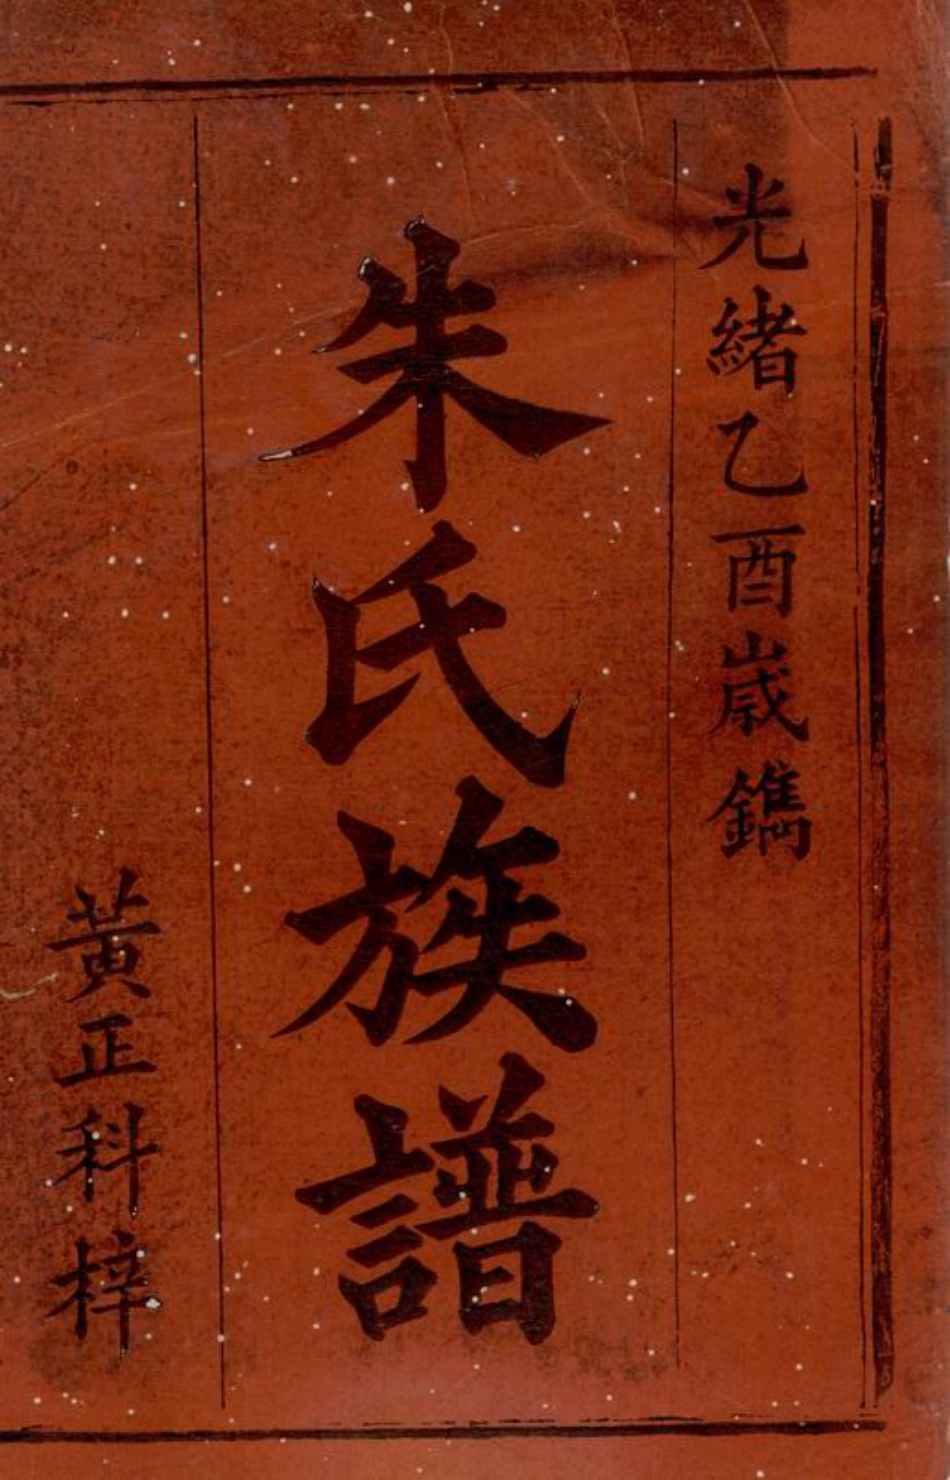 光緒乙酉歲鐫
朱氏族譜
黃正科梓